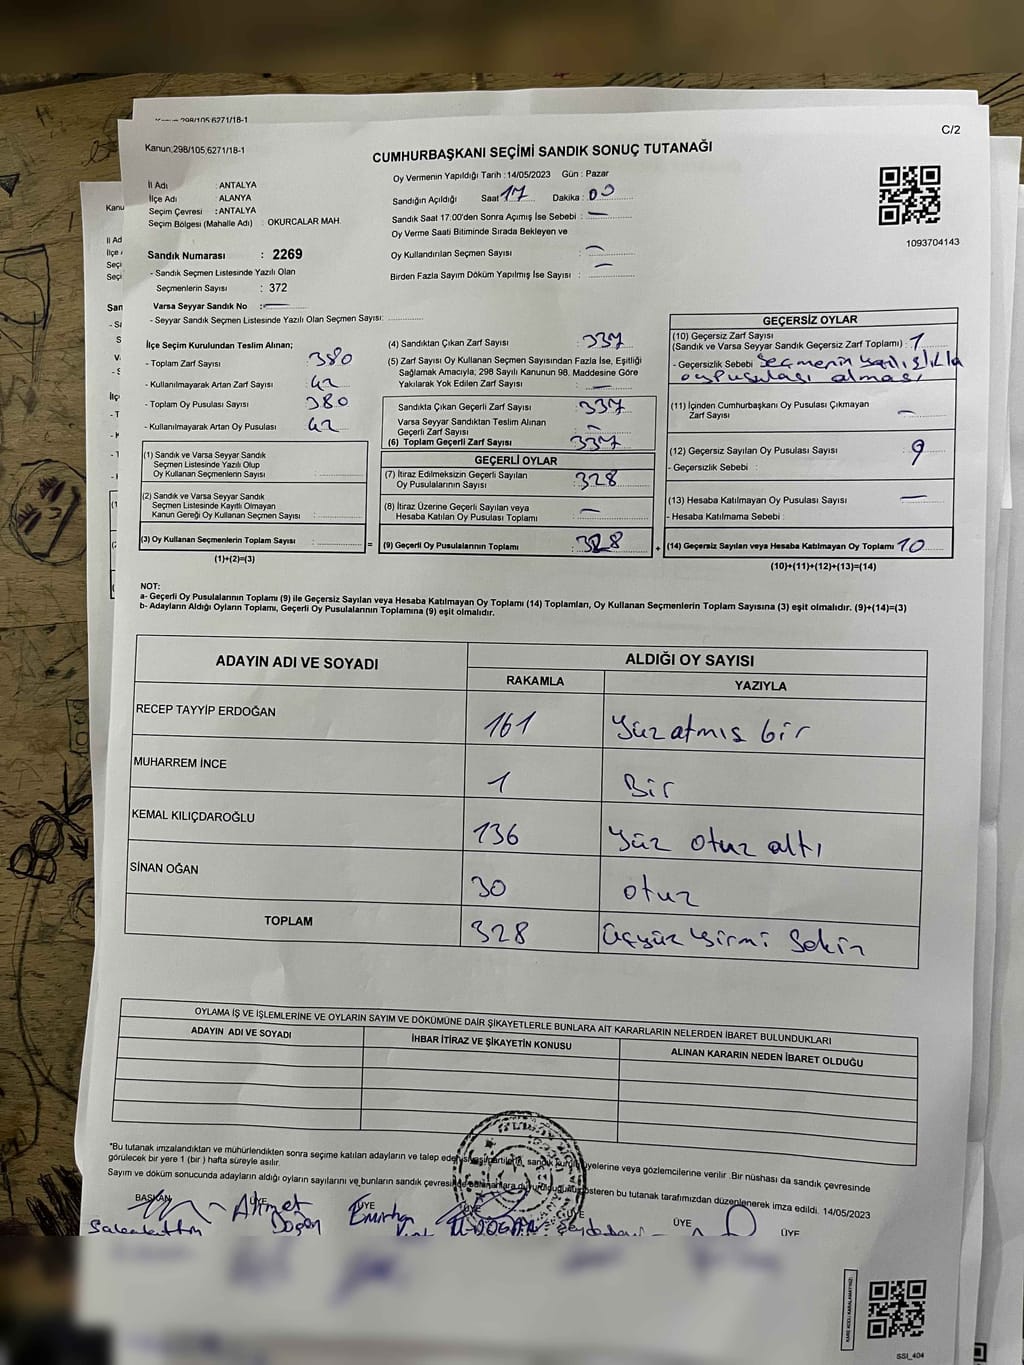 Kanun;298/105,6271/18-1
C/2
Kanun;298/105,6271/18-1
CUMHURBAŞKANI SEÇİMİ SANDIK SONUÇ TUTANAĞI
İl Adı : ANTALYA
İlçe Adı : ALANYA
Seçim Çevresi : ANTALYA
Seçim Bölgesi (Mahalle Adı) : OKURCALAR MAH.
Oy Vermenin Yapıldığı Tarih :14/05/2023 Gün : Pazar
Sandığın Açıldığı Saat 17 Dakika : 00
Sandık Saat 17.00'den Sonra Açımış İse Sebebi : —
Oy Verme Saati Bitiminde Sırada Bekleyen ve
Oy Kullandırılan Seçmen Sayısı : —
Birden Fazla Sayım Döküm Yapılmış İse Sayısı : —
1093704143
Sandık Numarası : 2269
- Sandık Seçmen Listesinde Yazılı Olan
Seçmenlerin Sayısı : 372
Varsa Seyyar Sandık No : —
- Seyyar Sandık Seçmen Listesinde Yazılı Olan Seçmen Sayısı: ..............
İlçe Seçim Kurulundan Teslim Alınan;
- Toplam Zarf Sayısı 380
- Kullanılmayarak Artan Zarf Sayısı : 42
- Toplam Oy Pusulası Sayısı : 380
- Kullanılmayarak Artan Oy Pusulası : 42
(1) Sandık ve Varsa Seyyar Sandık
Seçmen Listesinde Yazılı Olup
Oy Kullanan Seçmenlerin Sayısı :
(2) Sandık ve Varsa Seyyar Sandık
Seçmen Listesinde Kayıtlı Olmayan
Kanun Gereği Oy Kullanan Seçmen Sayısı :
(3) Oy Kullanan Seçmenlerin Toplam Sayısı :
(1)+(2)=(3)
=
(4) Sandıktan Çıkan Zarf Sayısı : 337
(5) Zarf Sayısı Oy Kullanan Seçmen Sayısından Fazla İse, Eşitliği
Sağlamak Amacıyla, 298 Sayılı Kanunun 98. Maddesine Göre
Yakılarak Yok Edilen Zarf Sayısı : —
Sandıkta Çıkan Geçerli Zarf Sayısı : 337
Varsa Seyyar Sandıktan Teslim Alınan
Geçerli Zarf Sayısı : —
(6) Toplam Geçerli Zarf Sayısı 337
GEÇERLİ OYLAR
(7) İtiraz Edilmeksizin Geçerli Sayılan
Oy Pusulalarının Sayısı : 328
(8) İtiraz Üzerine Geçerli Sayılan veya
Hesaba Katılan Oy Pusulası Toplamı : —
(9) Geçerli Oy Pusulalarının Toplamı : 328
+
GEÇERSİZ OYLAR
(10) Geçersiz Zarf Sayısı
(Sandık ve Varsa Seyyar Sandık Geçersiz Zarf Toplamı) : 1
- Geçersizlik Sebebi Seçmenin yanlışlıkla
oy pusulası alması
(11) İçinden Cumhurbaşkanı Oy Pusulası Çıkmayan
Zarf Sayısı —
(12) Geçersiz Sayılan Oy Pusulası Sayısı : 9
- Geçersizlik Sebebi :
(13) Hesaba Katılmayan Oy Pusulası Sayısı —
- Hesaba Katılmama Sebebi :
(14) Geçersiz Sayılan veya Hesaba Katılmayan Oy Toplamı 10
(10)+(11)+(12)+(13)=(14)
NOT:
a- Geçerli Oy Pusulalarının Toplamı (9) ile Geçersiz Sayılan veya Hesaba Katılmayan Oy Toplamı (14) Toplamları, Oy Kullanan Seçmenlerin Toplam Sayısına (3) eşit olmalıdır. (9)+(14)=(3)
b- Adayların Aldığı Oyların Toplamı, Geçerli Oy Pusulalarının Toplamına (9) eşit olmalıdır.
ADAYIN ADI VE SOYADI
ALDIĞI OY SAYISI
RAKAMLA YAZIYLA
RECEP TAYYİP ERDOĞAN 161 yüz atmış bir
MUHARREM İNCE 1 Bir
KEMAL KILIÇDAROĞLU 136 yüz otuz altı
SİNAN OĞAN 30 otuz
TOPLAM 328 üçyüz yirmi sekiz
OYLAMA İŞ VE İŞLEMLERİNE VE OYLARIN SAYIM VE DÖKÜMÜNE DAİR ŞİKAYETLERLE BUNLARA AİT KARARLARIN NELERDEN İBARET BULUNDUKLARI
ADAYIN ADI VE SOYADI İHBAR İTİRAZ VE ŞİKAYETİN KONUSU ALINAN KARARIN NEDEN İBARET OLDUĞU
*Bu tutanak imzalandıktan ve mühürlendikten sonra seçime katılan adayların ve talep eden siyasi partilerin, sandık kurulu üyelerine veya gözlemcilerine verilir. Bir nüshası da sandık çevresinde
görülecek bir yere 1 (bir ) hafta süreyle asılır.
Sayım ve döküm sonucunda adayların aldığı oyların sayılarını ve bunların sandık çevresinde gösteren bu tutanak tarafımızdan düzenlenerek imza edildi. 14/05/2023
BAŞKAN ÜYE ÜYE ÜYE ÜYE ÜYE ÜYE
Ahmet Emirhan
Doğan DOĞAN
SSİ_404